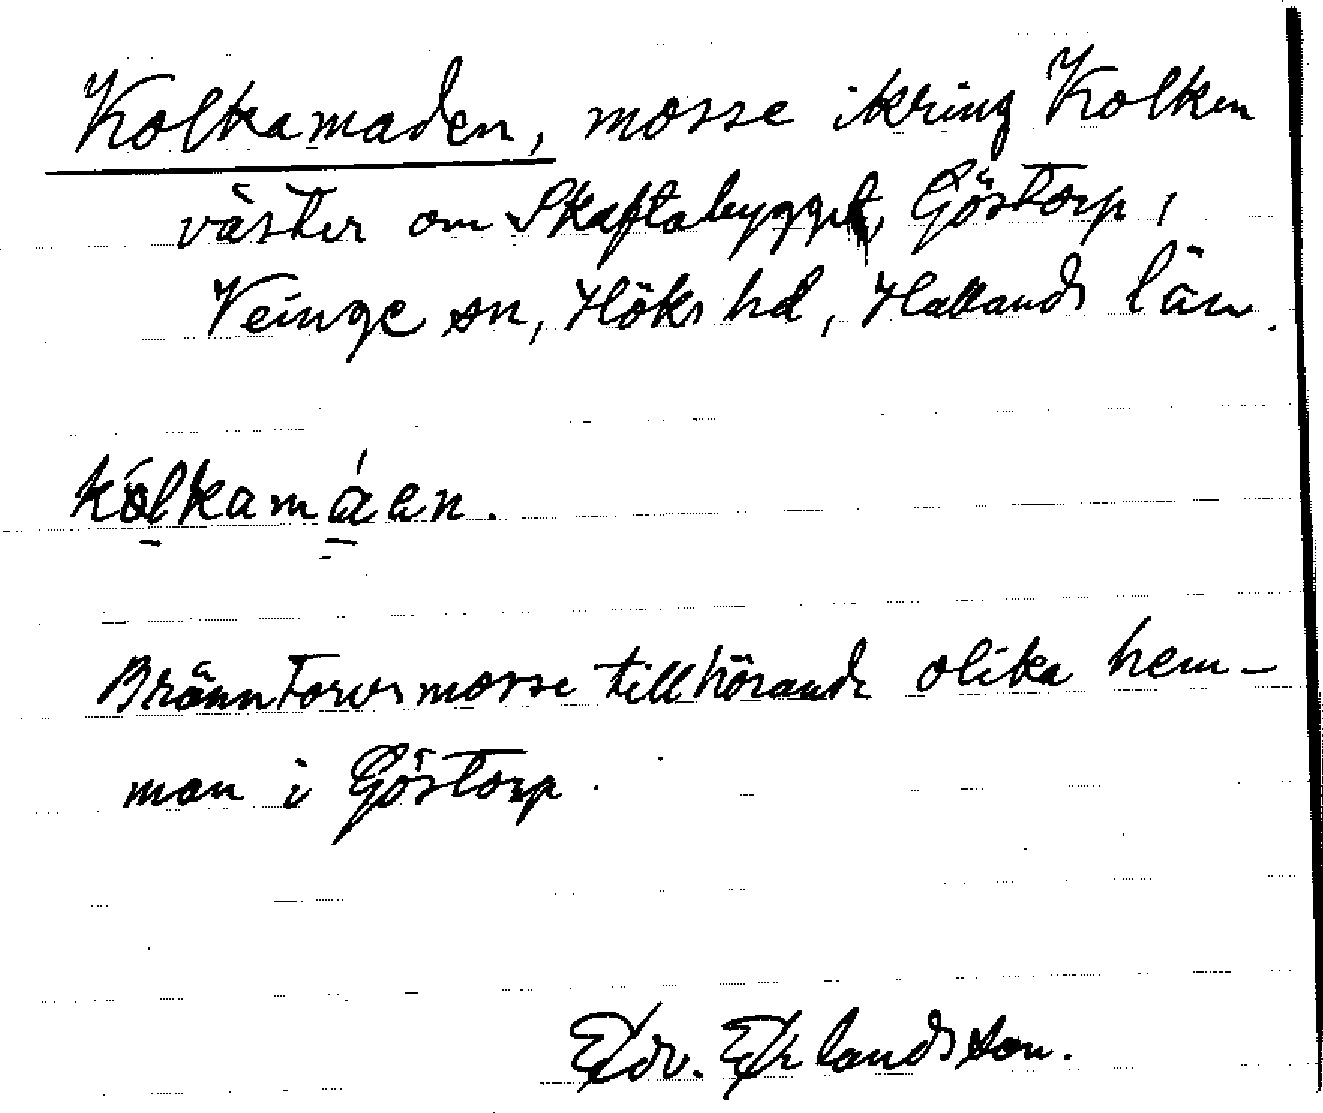 Kolkamaden, mosse ikring Kolken
väster om Skaftabygget, Göstorp,
Veinge sn, Höks hd, Hallands län.
kólkamáen.
Bränntorvsmosse tillhörande olika hem-
man i Göstorp.
Edv. Erlandsson.